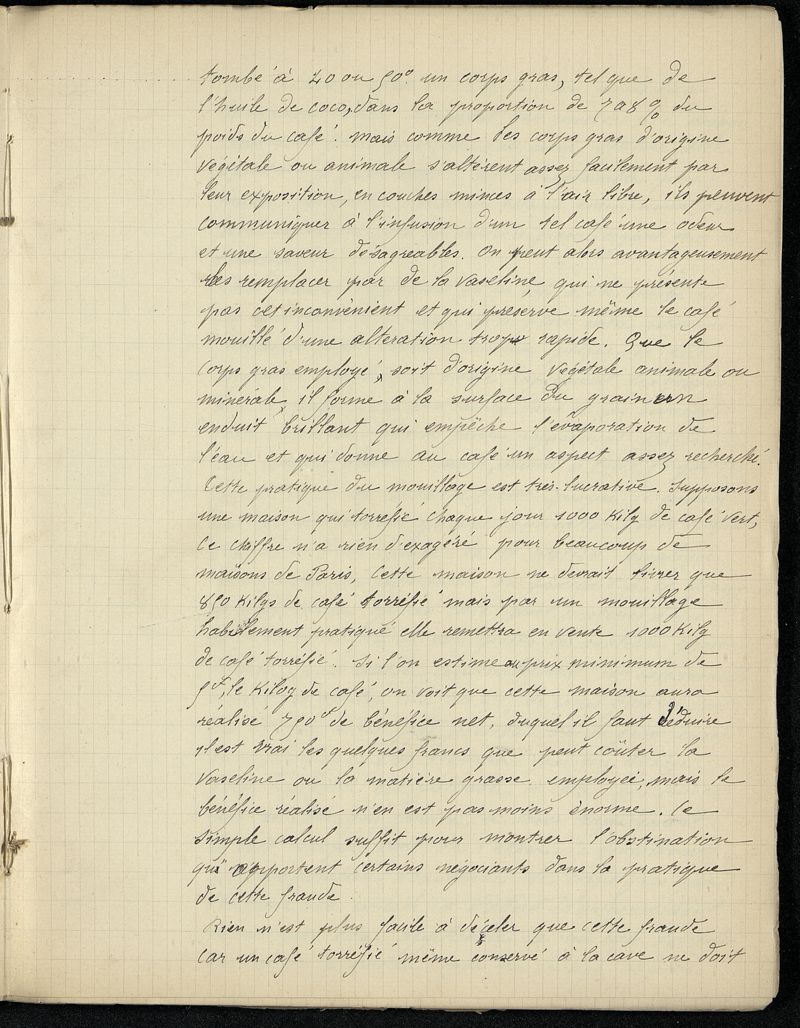 tombé à 40 ou 50° un corps gras, tel que de
l'huile de coco, dans la proportion de 7 à 8 % du
poids du café. Mais comme les corps gras d'origine
végétale ou animale s'altèrent assez facilement par
leur exposition, en couches minces à l'air libre, ils peuvent
communiquer à l'infusion d'un tel café une odeur
et une saveur désagréables. On peut alors avantageusement
les remplacer par de la vaseline, qui ne présente
pas cet inconvénient et qui préserve même le café
mouillé d'une altération trop rapide. Que le
corps gras employé, soit d'origine végétale animale ou
minérale, il forme à la surface du grain un
enduit brillant qui empêche l'évaporation de
l'eau et qui donne au café un aspect assez recherché.
Cette pratique du mouillage est très-lucrative. Supposons
une maison qui torréfie chaque jour 1000 Kilg de café vert,
ce chiffre n'a rien d'exagéré pour beaucoup de
maisons de Paris, cette maison ne devrait livrer que
850 Kilgs de café torréfié mais par un mouillage
habilement pratiqué elle remettra en vente 1000 Kilg
de café torréfié. Si l'on estime au prix minimum de
5f, le Kilog de café, on voit que cette maison aura
réalisé 750f de bénéfice net, duquel il faut déduire
il est vrai les quelques francs que peut coûter la
vaseline ou la matière grasse employée, mais le
bénéfice réalisé n'en est pas moins énorme. Ce
simple calcul suffit pour montrer l'obstination
qu'apportent certains négociants dans la pratique
de cette fraude.
Rien n'est plus facile à déceler que cette fraude
car un café torréfié même conservé à la cave ne doit